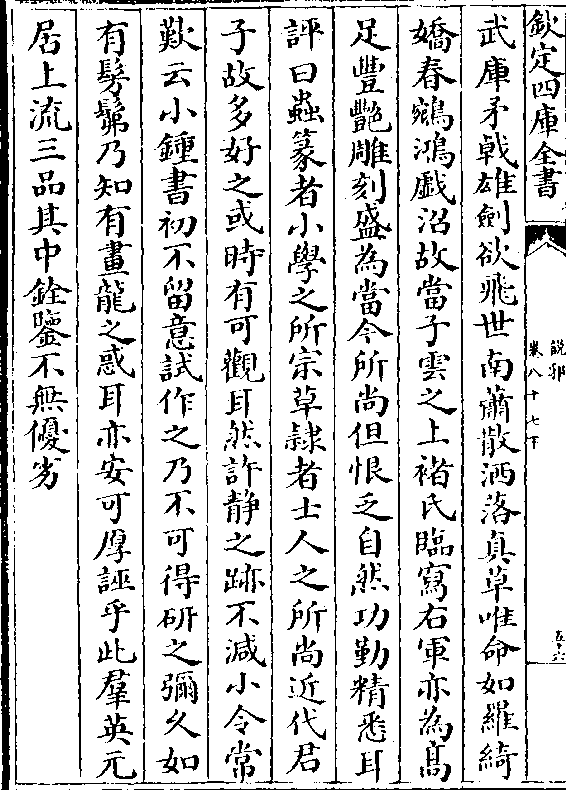 欽定四庫全書
說郛
卷八十七下
五十六
武庫矛戟雄劍欲飛世南蕭散洒落真草唯命如羅綺
嬌春鵷鴻戲沼故當子雲之上褚氏臨寫右軍亦為髙
足豐艷雕刻盛為當今所尚但恨乏自然功勤精悉耳
評曰蟲篆者小學之所宗草隸者士人之所尚近代君
子故多好之或時有可觀耳然許静之跡不減小令常
歎云小鍾書初不留意試作之乃不可得研之彌乆如
有髣髴乃知有畫龍之惑耳亦安可厚誣乎此羣英元
居上流三品其中銓鑒不無優劣